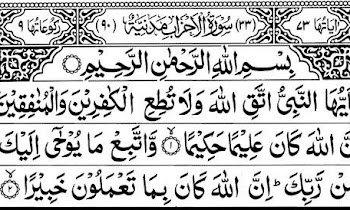 اٰيَاتُهَا ٥٣ (٣٣) سُوْرَةُ الْاَحْزَابِ مَدَنِيَّةٌ (٩٠) رُكُوْعَاتُهَا ٩
بِسْمِ اللّٰهِ الرَّحْمٰنِ الرَّحِيْمِ
اَيُّهَا النَّبِيُّ اتَّقِ اللّٰهَ وَلَا تُطِعِ الْكٰفِرِيْنَ وَالْمُنٰفِقِيْنَ
نَّ اللّٰهَ كَانَ عَلِيْمًا حَكِيْمًا ۙ١ وَّاتَّبِعْ مَا يُوْحٰۤى اِلَيْكَ
نْ رَّبِّكَ ؕ اِنَّ اللّٰهَ كَانَ بِمَا تَعْمَلُوْنَ خَبِيْرًا ۙ٢